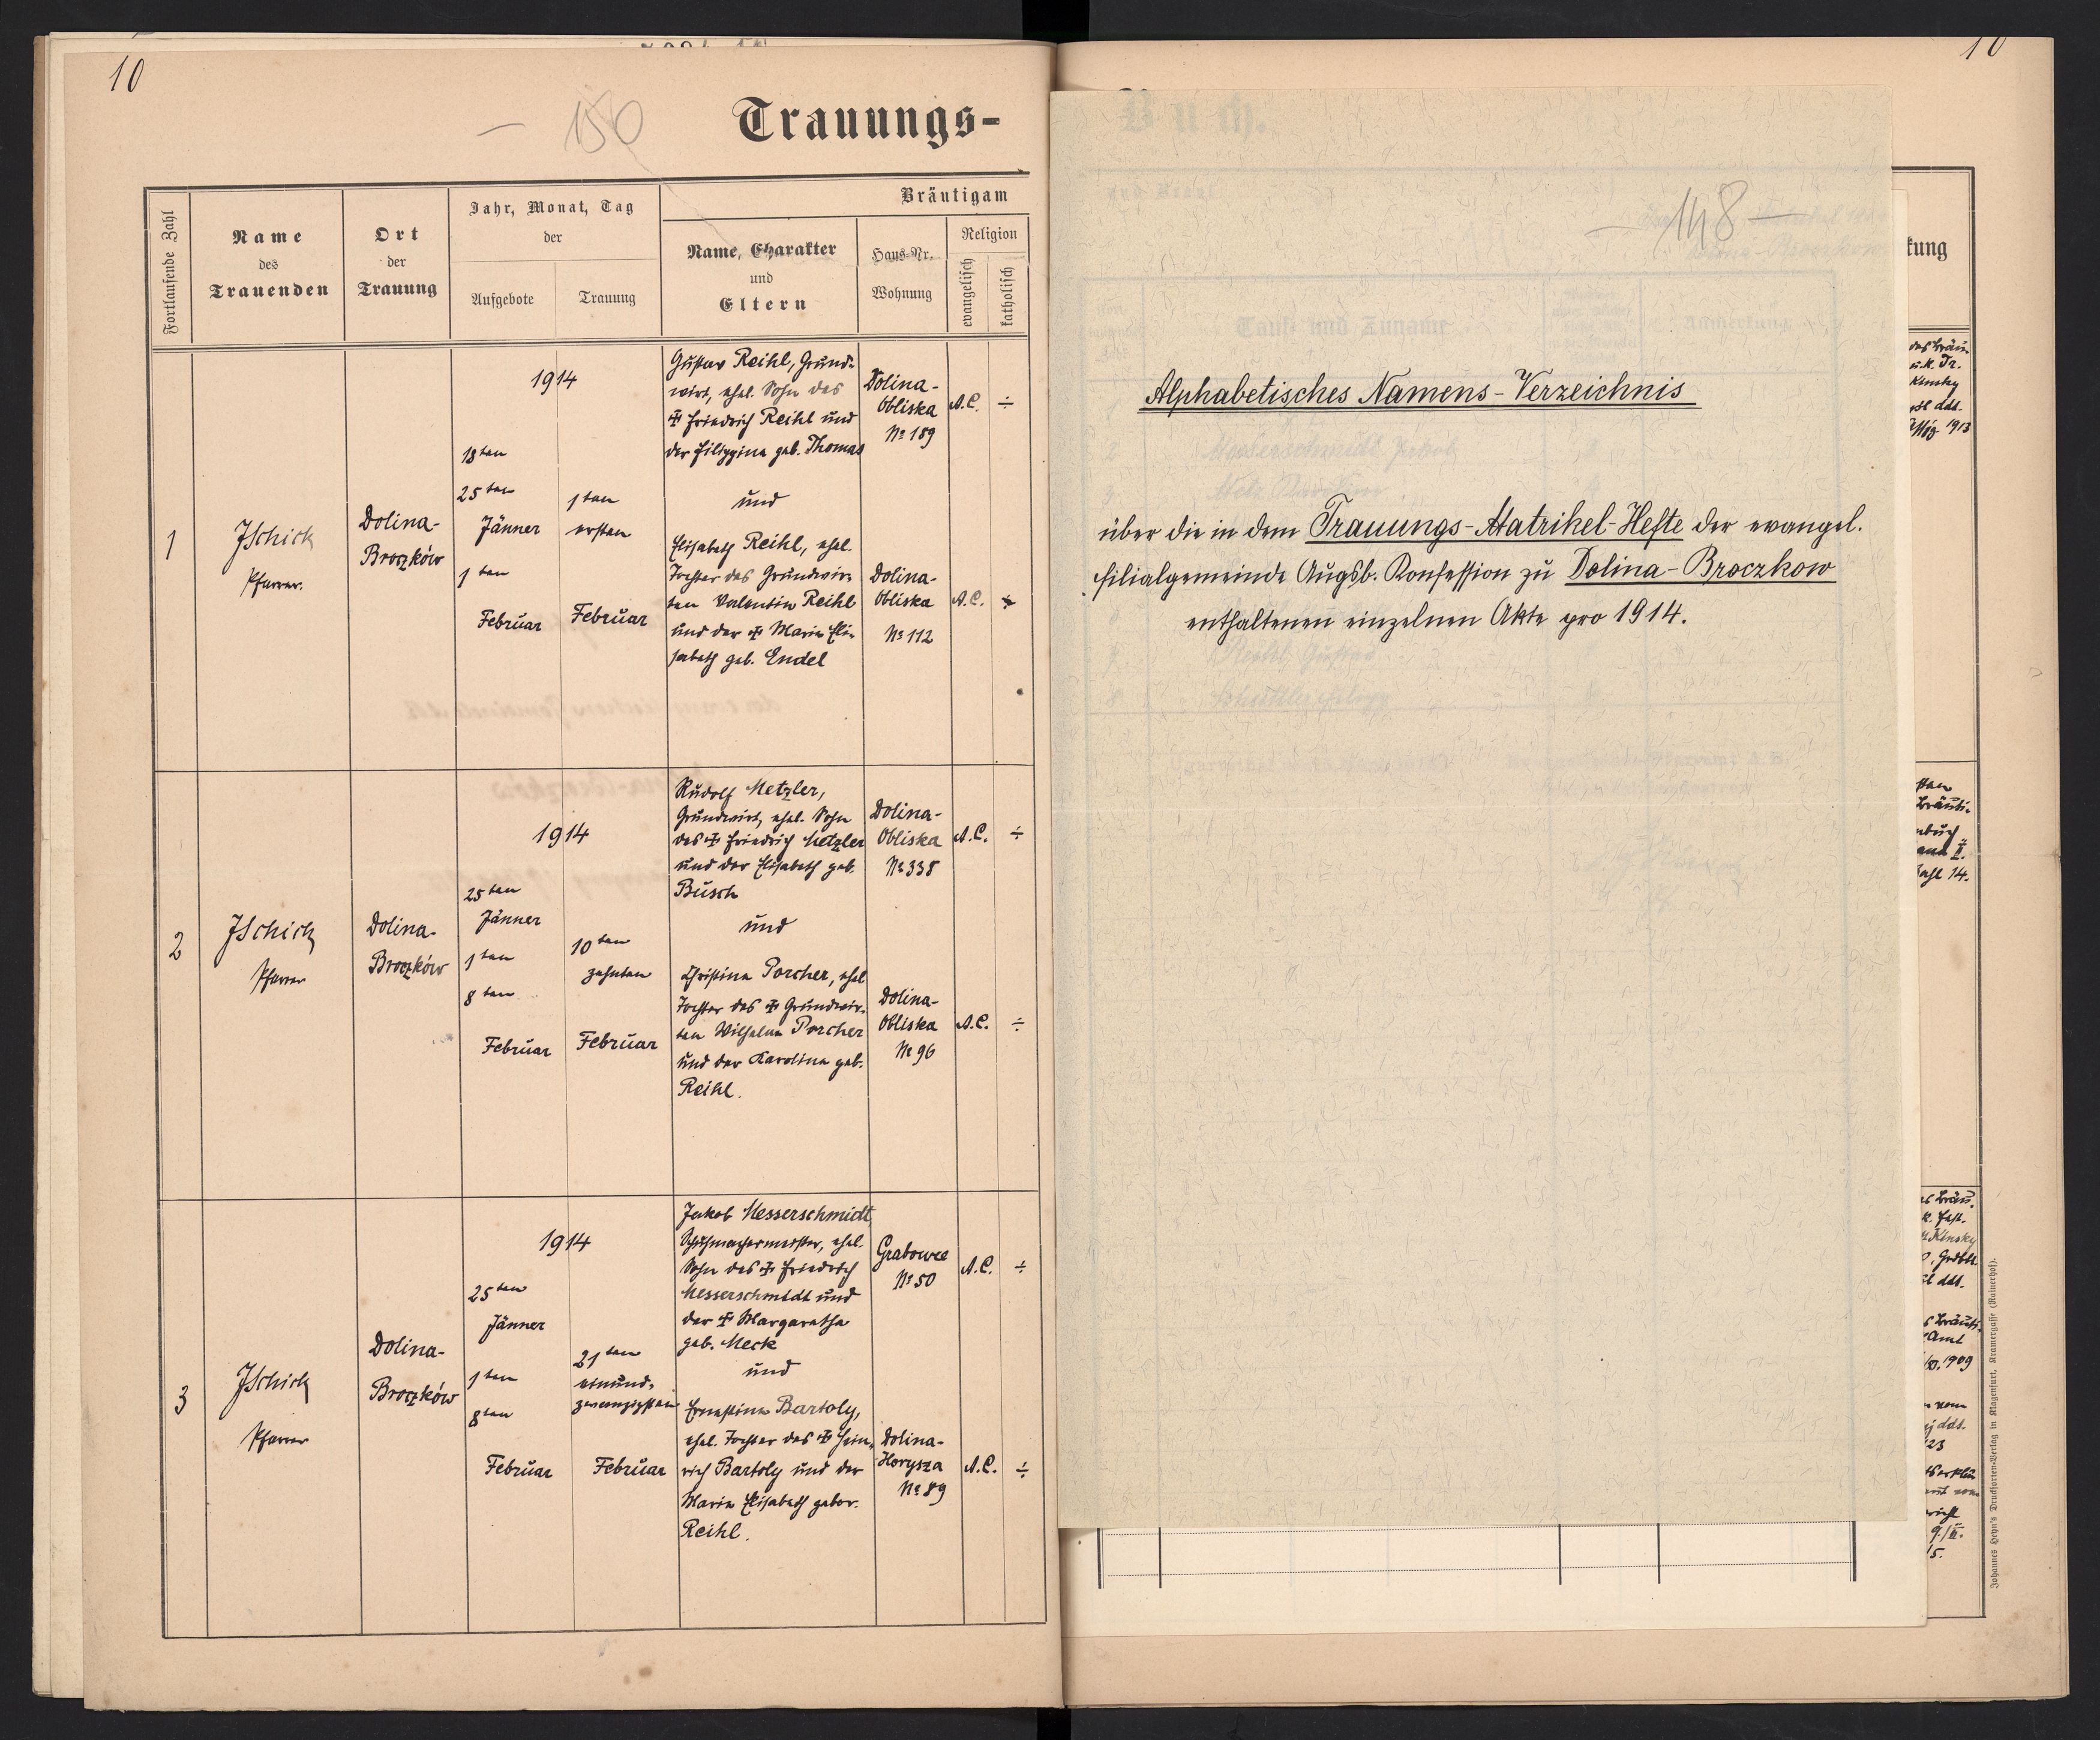 10
— 150
Trauungs-
Fortlaufende Zahl
Name
des
Trauenden
Ort
der
Trauung
Jahr, Monat, Tag
der
Aufgebote
Trauung
Bräutigam
Name, Charakter
und
Eltern
Haus-Nr.
Wohnung
Religion
evangelisch
katholisch
1
JSchick
Pfarrer.
Dolina-
Broczków
1914
18ten
25ten
Jänner
1ten
Februar
1ten
ersten
Februar
Gustav Reihl, Grund-
wirt, ehel. Sohn des
✝ Friedrich Reihl und
der Filippina geb. Thomas
und
Elisabeth Reihl, ehel.
Tochter des Grundwir-
ten Valentin Reihl
und der ✝ Maria Eli-
sabeth geb. Endel
Dolina-
Obliska
№ 189
A.C. ÷
Dolina-
Obliska
№ 112
A.C. ÷
2
JSchick
Pfarrer
Dolina-
Broczków
1914
25ten
Jänner
1ten
8ten
Februar
10ten
zehnten
Februar
Rudolf Metzler,
Grundwirt, ehel. Sohn
des ✝ Friedrich Metzler
und der Elisabeth geb.
Busch
und
Christina Porcher, ehel
Tochter des ✝ Grundwir-
ten Wilhelm Porcher
und der Karolina geb.
Reihl.
Dolina-
Obliska
№ 338
A.C. ÷
Dolina-
Obliska
№ 96
A.C. ÷
3
JSchick
Pfarrer
Dolina-
Broczków
1914
25ten
Jänner
1ten
8ten
Februar
21ten
einund-
zwanzigsten
Februar
Jakob Messerschmidt,
Schuhmachermeister, ehel.
Sohn des ✝ Friedrich
Messerschmidt und
der ✝ Margaretha
geb. Meck
und
Ernestina Bartoly,
ehel. Tochter des ✝ Hein-
rich Bartoly und der
Maria Elisabeth gebor.
Reihl.
Grabowce
№ 50
A.C. ÷
Dolina-
Horysza
№ 89
A.C. ÷
10
— 148 —
Alphabetisches Namens-Verzeichnis
über die in dem Trauungs-Matrikel-Hefte der evangel.
Filialgemeinde Augsb. Konfession zu Dolina-Broczkow
enthaltenen einzelnen Akte pro 1914.
Johannes Heyn's Drucksorten-Verlag in Klagenfurt, Kramergasse (Rainerhof).